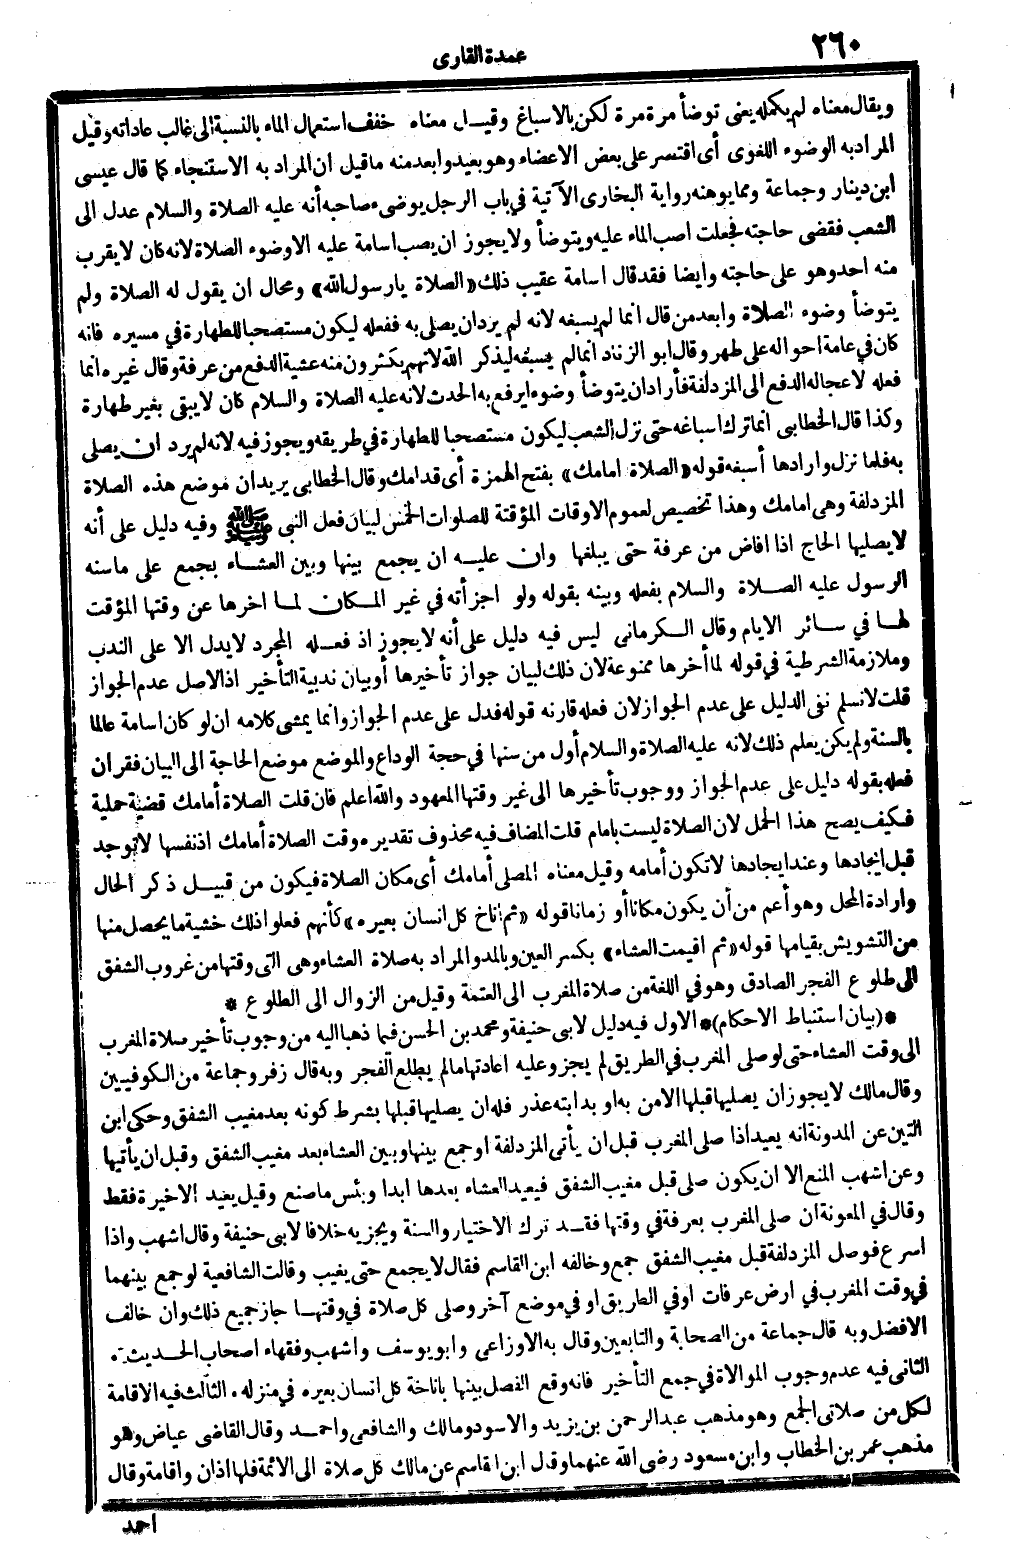 ٢٦٠
عمدة القارى
ويقال معناه لم يكمله يعنى توضأ مرة مرة لكن بالاسباغ وقيل معناه خفف استعمال الماء بالنسبة الى غالب عاداته وقيل
المراد به الوضوء اللغوى أى اقتصر على بعض الاعضاء وهو بعيد وابعد منه ما قيل ان المراد به الاستنجاء كما قال عيسى
ابن دينار وجماعة ومما يوهنه رواية البخارى الآتية في باب الرجل يوضىء صاحبه أنه عليه الصلاة والسلام عدل الى
الشعب فقضى حاجته فجعلت اصب الماء عليه ويتوضأ ولا يجوز ان يصب اسامة عليه الا وضوء الصلاة لانه كان لا يقرب
منه احد وهو على حاجته وأيضا فقد قال اسامة عقيب ذلك «الصلاة يارسول الله» ومحال ان يقول له الصلاة ولم
يتوضأ وضوء الصلاة وابعد من قال انما لم يسبغه لانه لم يرد ان يصلى به ففعله ليكون مستصحبا للطهارة في مسيره فانه
كان في عامة احواله على طهر وقال ابو الزناد انما لم يسبغه ليذكر الله لانهم يكثرون منه عشية الدفع من عرفة وقال غيره انما
فعله لاعجاله الدفع الى المزدلفة فأراد ان يتوضأ وضوءا يرفع به الحدث لانه عليه الصلاة والسلام كان لا يبقى بغير طهارة
وكذا قال الخطابى انما ترك اسباغه حتى نزل الشعب ليكون مستصحبا للطهارة في طريقه ويجوز فيه لانه لم يرد ان يصلى
به فلما نزل وارادها أسبغه قوله «الصلاة امامك» بفتح الهمزة أى قدامك وقال الخطابى يريد ان موضع هذه الصلاة
المزدلفة وهى امامك وهذا تخصيص لعموم الاوقات المؤقتة للصلوات الخمس لبيان فعل النبى ﷺ وفيه دليل على أنه
لا يصليها الحاج اذا افاض من عرفة حتى يبلغها وان عليه ان يجمع بينها وبين العشاء بجمع على ما سنه
الرسول عليه الصلاة والسلام بفعله وبينه بقوله ولو اجزأته في غير المكان لما اخرها عن وقتها المؤقت
لها في سائر الايام وقال الكرمانى ليس فيه دليل على أنه لا يجوز اذ فعله المجرد لا يدل الا على الندب
وملازمة الشرطية في قوله لما أخرها ممنوعة لان ذلك لبيان جواز تأخيرها أو بيان ندبية التأخير اذ الاصل عدم الجواز
قلت لا نسلم نفى الدليل على عدم الجواز لان فعله قارنه قوله فدل على عدم الجواز وانما يمشى كلامه ان لو كان اسامة عالما
بالسنة ولم يكن يعلم ذلك لانه عليه الصلاة والسلام أول من سنها في حجة الوداع والموضع موضع الحاجة الى البيان فقران
فعله بقوله دليل على عدم الجواز ووجوب تأخيرها الى غير وقتها المعهود والله أعلم فان قلت الصلاة أمامك قضية حملية
فكيف يصح هذا الحمل لان الصلاة ليست بامام قلت المضاف فيه محذوف تقديره وقت الصلاة أمامك اذ نفسها لا توجد
قبل ايجادها وعند ايجادها لا تكون أمامه وقيل معناه المصلى أمامك أى مكان الصلاة فيكون من قبيل ذكر الحال
وارادة المحل وهو أعم من أن يكون مكانا أو زمانا قوله «ثم اناخ كل انسان بعيره» كأنهم فعلوا ذلك خشية ما يحصل منها
من التشويش بقيامها قوله «ثم اقيمت العشاء» بكسر العين وبالمد والمراد به صلاة العشاء وهى التى وقتها من غروب الشفق
الى طلوع الفجر الصادق وهو في اللغة من صلاة المغرب الى العتمة وقيل من الزوال الى الطلوع *
*(بيان استنباط الاحكام)* الاول فيه دليل لابى حنيفة ومحمد بن الحسن فيما ذهبا اليه من وجوب تأخير صلاة المغرب
الى وقت العشاء حتى لو صلى المغرب في الطريق لم يجز وعليه اعادتها ما لم يطلع الفجر وبه قال زفر وجماعة من الكوفيين
وقال مالك لا يجوز ان يصليها قبلها الا من به او بدابته عذر فله ان يصليها قبلها بشرط كونه بعد مغيب الشفق وحكى ابن
التين عن المدونة انه يعيد اذا صلى المغرب قبل ان يأتى المزدلفة او جمع بينها وبين العشاء بعد مغيب الشفق وقبل ان يأتيها
وعن اشهب المنع الا ان يكون صلى قبل مغيب الشفق فيعيد العشاء بعدها ابدا وبئس ما صنع وقيل يعيد الاخيرة فقط
وقال في المعونة ان صلى المغرب بعرفة في وقتها فقد ترك الاختيار والسنة ويجزيه خلافا لابى حنيفة وقال اشهب واذا
اسرع فوصل المزدلفة قبل مغيب الشفق جمع وخالفه ابن القاسم فقال لا يجمع حتى يغيب وقالت الشافعية لو جمع بينهما
في وقت المغرب في ارض عرفات او في الطريق او في موضع آخر وصلى كل صلاة في وقتها جاز جميع ذلك وان خالف
الافضل وبه قال جماعة من الصحابة والتابعين وقال به الاوزاعى وابو يوسف واشهب وفقهاء اصحاب الحديث .
الثانى فيه عدم وجوب الموالاة في جمع التأخير فانه وقع الفصل بينها باناخة كل انسان بعيره في منزله . الثالث فيه الاقامة
لكل من صلاتى الجمع وهو مذهب عبد الرحمن بن يزيد والاسود ومالك والشافعى واحمد وقال القاضى عياض وهو
مذهب عمر بن الخطاب وابن مسعود رضى الله عنهما وقال ابن القاسم عن مالك كل صلاة الى الائمة فلها اذان واقامة وقال
احمد